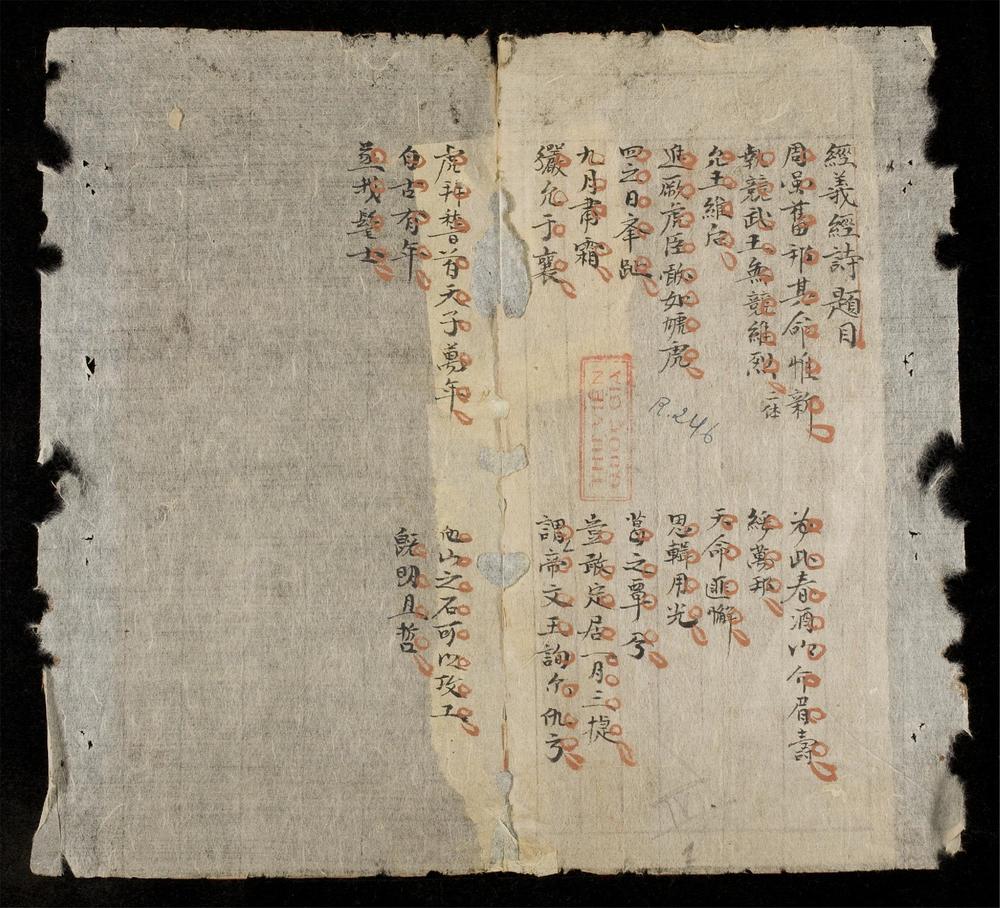 經義經詩題目
周虽舊邦其命惟新
執競武王無競維烈 二体
允王維后
進厥虎臣敢如虓虎
四之日奉趾
九月肅霜
玁允于襄
虎拜稽首天子萬年
自古有年
烝我髦士
为此春酒以介眉壽
綏萬邦
天命匪懈
思輯用光
葛之覃兮
豈敢定居一月三捷
謂帝文王詢尔仇方
他山之石可以攻工
既明且哲
R.246